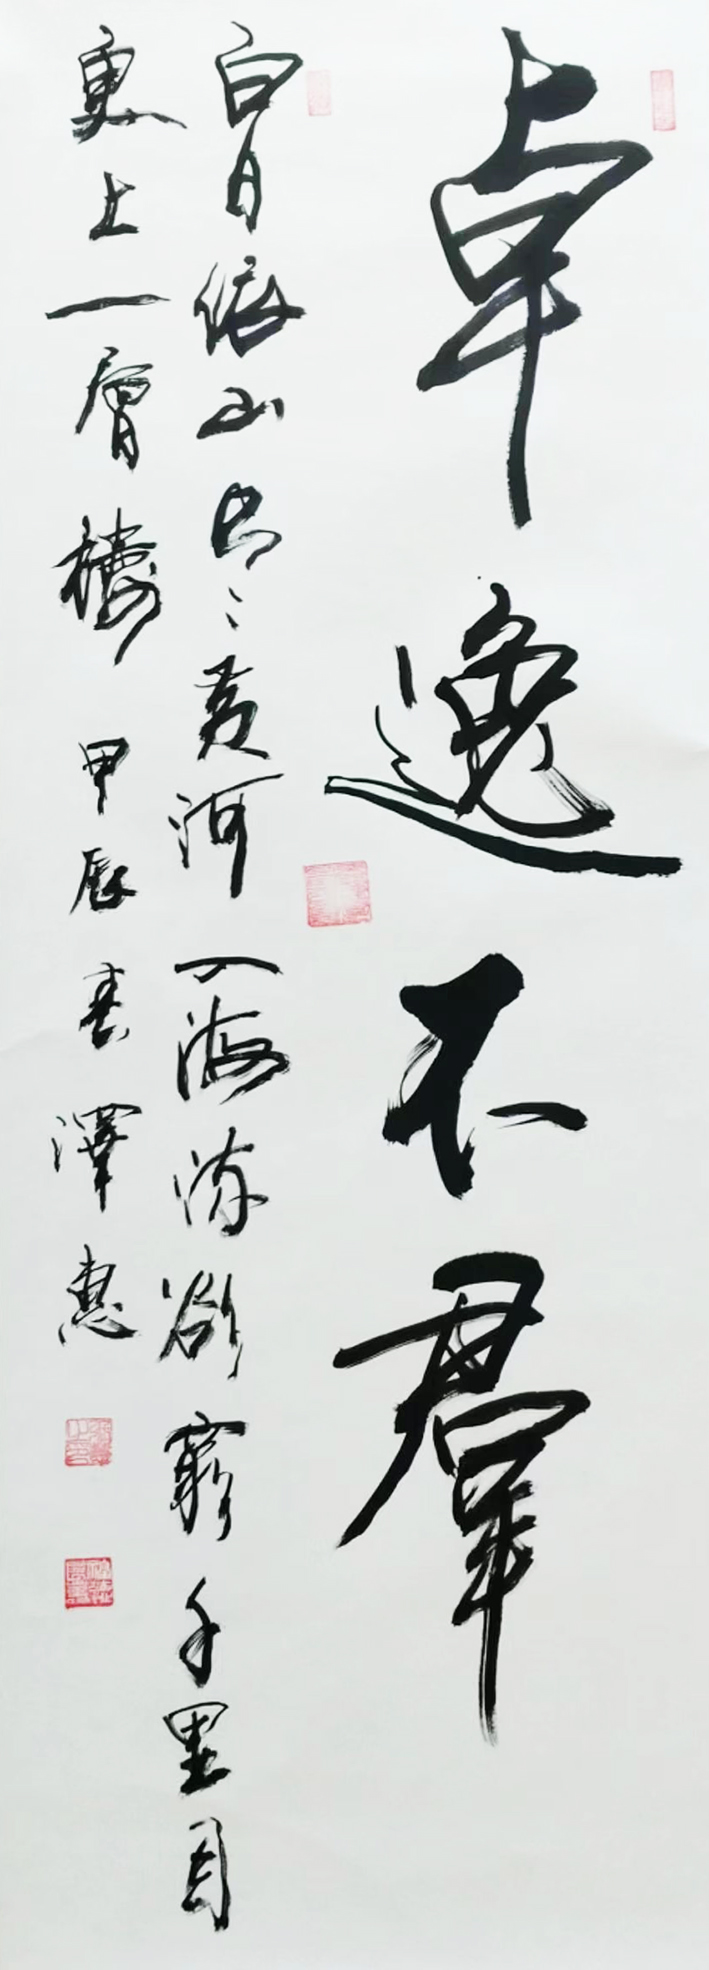 卓逸不羣
白日依山尽黄河入海流欲窮千里目
更上一層樓 甲辰春澤惠